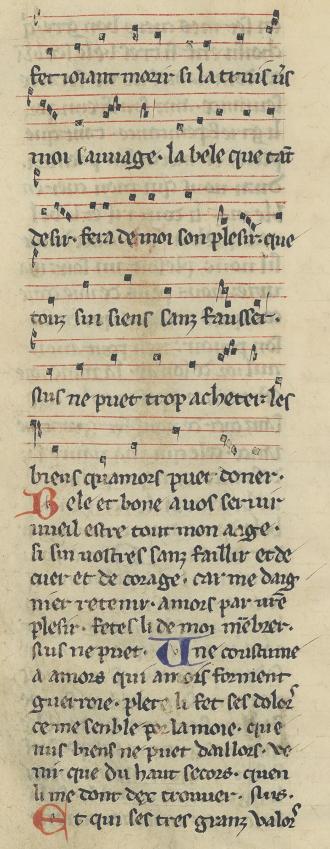 fet ioiant morir si la truis ṽs
moi sauuage · la bele que tãt
desir · fera de moi son plesir · que
touz sui siens sanz fausser ·
nus ne puet trop acheter · les
biens qu amors puet doner ·
Bele et bone a uos seruir
uueil estre tout mon aage ·
si sui uostres sanz faillir et de
cuer et de corage · car me daig
nier retenir · amors par ur̃e
plesir · fetes li de moi mẽbrer ·
nus ne puet · Une coustume
a amors qui amis forment
guerroie · plete li fet ses dolor
ce me senble por la moie · que
nus biens ne puet d aillors · ve
nir que du haut secors · quen
li me dont dex trouuer · nus ·
Et qui ses tres granz valor